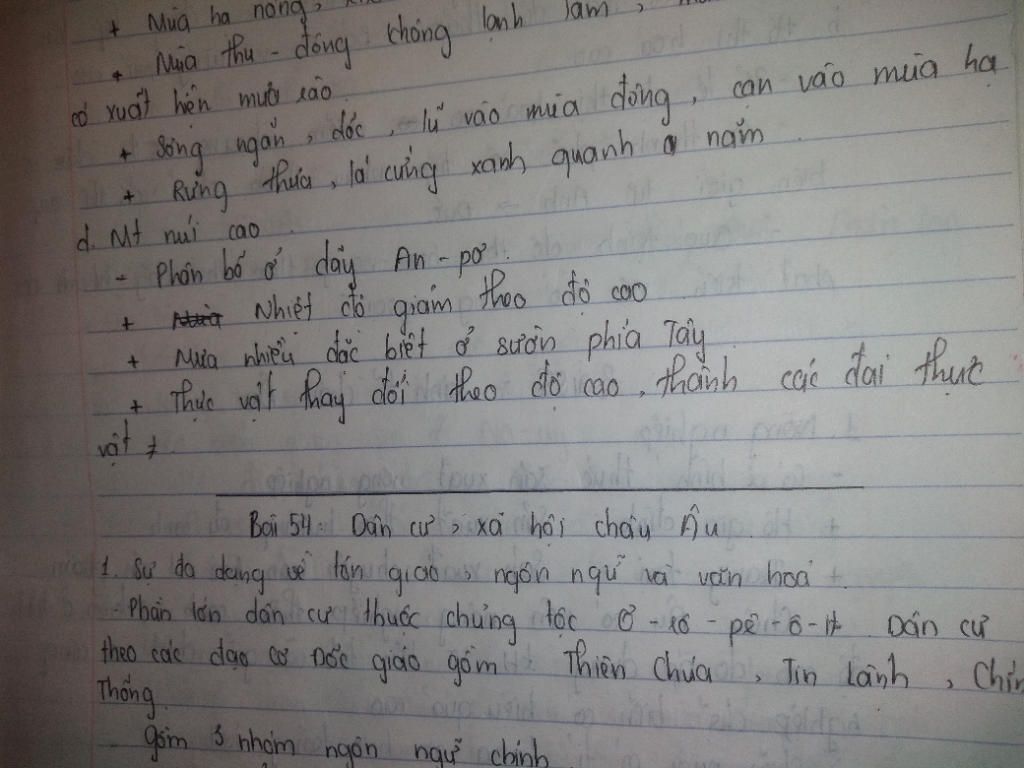 + Mùa hạ nóng,
+ Mùa thu - đông không lạnh lắm,
có xuất hiện mưa rào
+ Sông ngắn, dốc, lũ vào mùa đông, cạn vào mùa hạ
+ Rừng thưa, lá cứng xanh quanh năm
d. Mt núi cao
- Phân bố ở dãy An - pơ.
+ Nhiệt độ giảm theo độ cao
+ Mưa nhiều đặc biệt ở sườn phía Tây
+ Thực vật thay đổi theo độ cao, thành các đai thực
vật ≠
Bài 54: Dân cư, xã hội châu Âu
1. Sự đa dạng về tôn giáo, ngôn ngữ và văn hoá
- Phần lớn dân cư thuộc chủng tộc Ơ - rô - pê - ô - it. Dân cư
theo các đạo cơ Dốc giáo gồm Thiên Chúa, Tin Lành, Chính
Thống.
gồm 3 nhóm ngôn ngữ chính